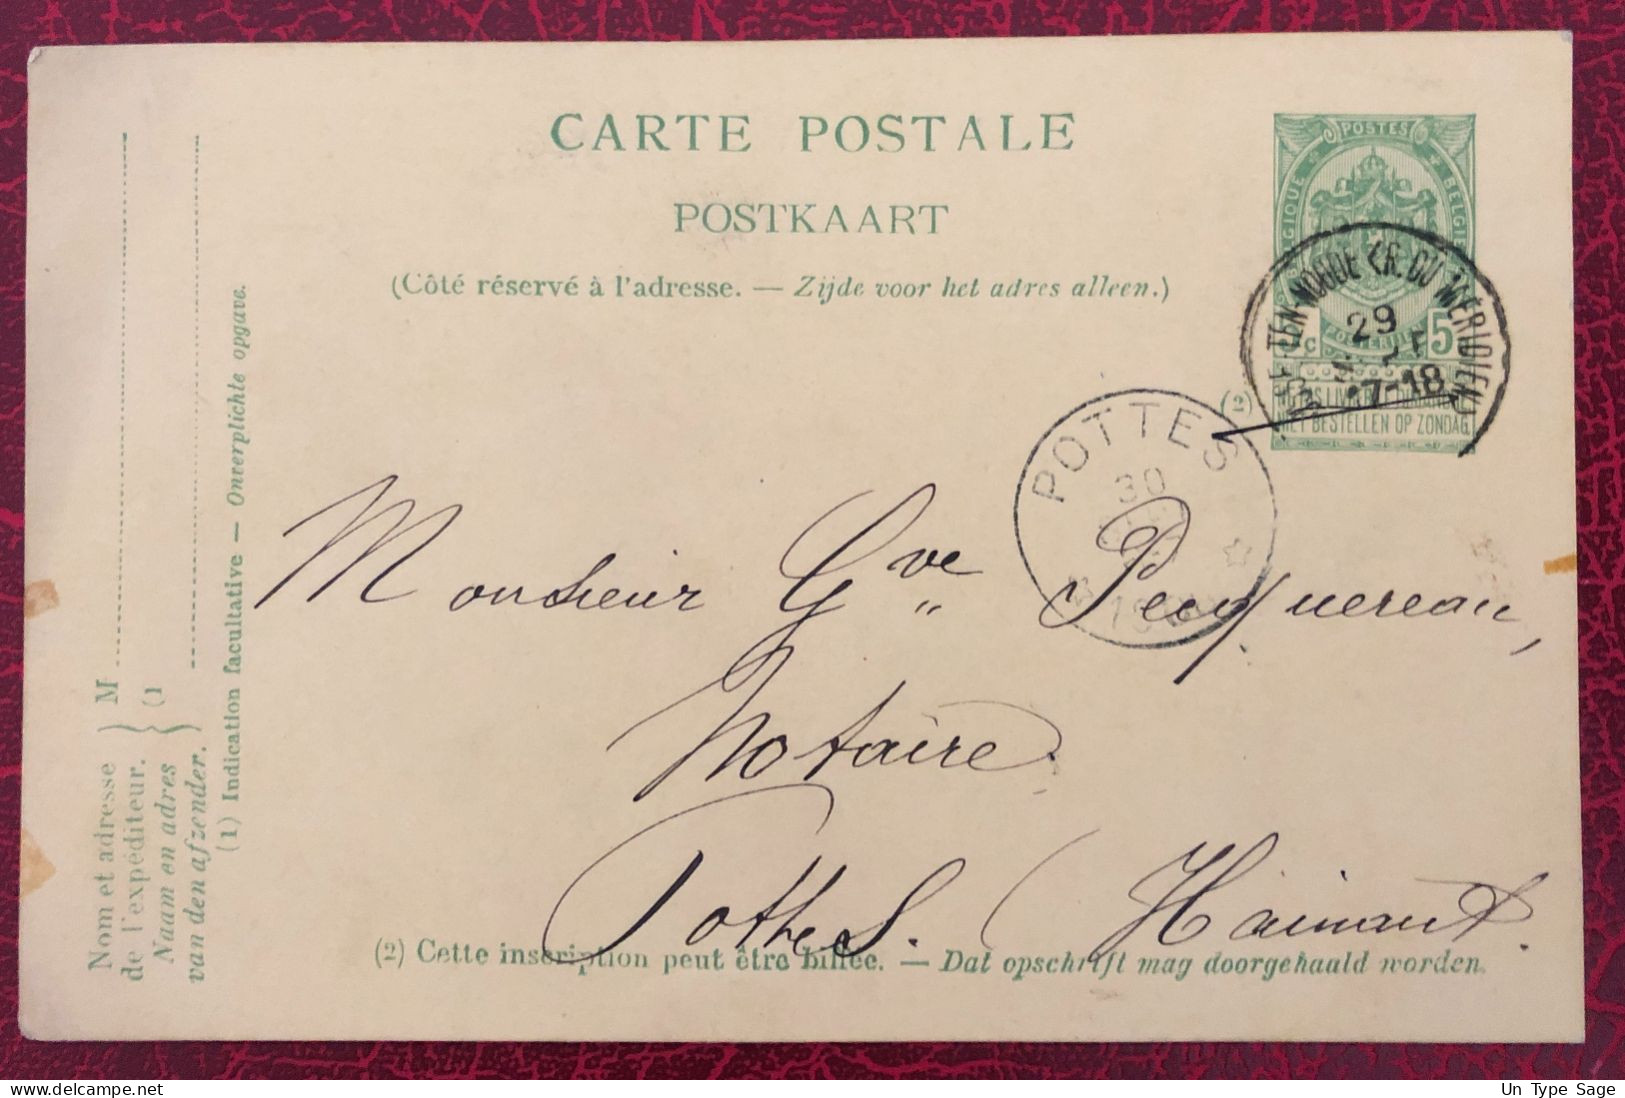 CARTE POSTALE
POSTKAART
(Côté réservé à l'adresse. — Zijde voor het adres alleen.)
POSTES
BELGIQUE BELGIË
5
NE PAS LIVRER LE DIMANCHE
NIET BESTELLEN OP ZONDAG
(R. DU MÉRIDIEN)
29
7-18
(2)
POTTES
30
Monsieur Gve Pecquereau,
Notaire
Pottes. (Hainaut.
(2) Cette inscription peut être biffée. — Dat opschrift mag doorgehaald worden.
Nom et adresse
de l'expéditeur.
Naam en adres
van den afzender.
M
(1
(1) Indication facultative — Onverplichte opgave.
Un Type Sage